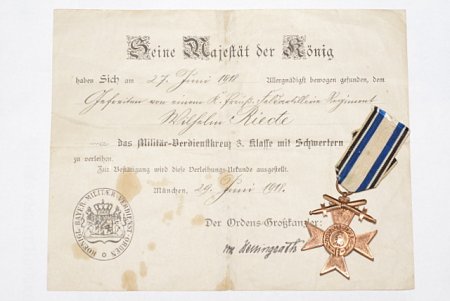 Seine Majestät der König
haben Sich am 27. Juni 1918. Allergnädigst bewogen gefunden, dem
Gefreiten von einem K. Preuß. Feldartillerie Regiment
Wilhelm Riede
das Militär-Verdienstkreuz 3. Klasse mit Schwertern
zu verleihen.
Zur Bestätigung wird diese Verleihungs-Urkunde ausgestellt.
München, 29. Juni 1918.
Der Ordens-Großkanzler:
KOENIGL. BAYER. MILITÆR-VERDIENSTORDEN